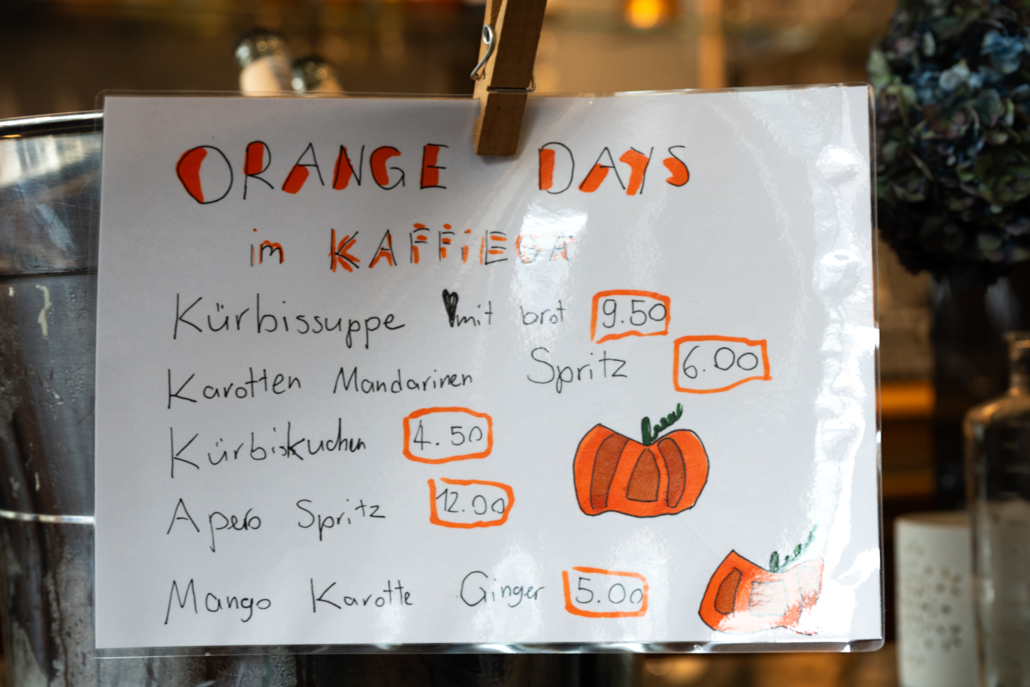 ORANGE DAYS
im KAFFiEGA
Kürbissuppe mit brot 9.50
Karotten Mandarinen Spritz 6.00
Kürbiskuchen 4.50
Apero Spritz 12.00
Mango Karotte Ginger 5.00